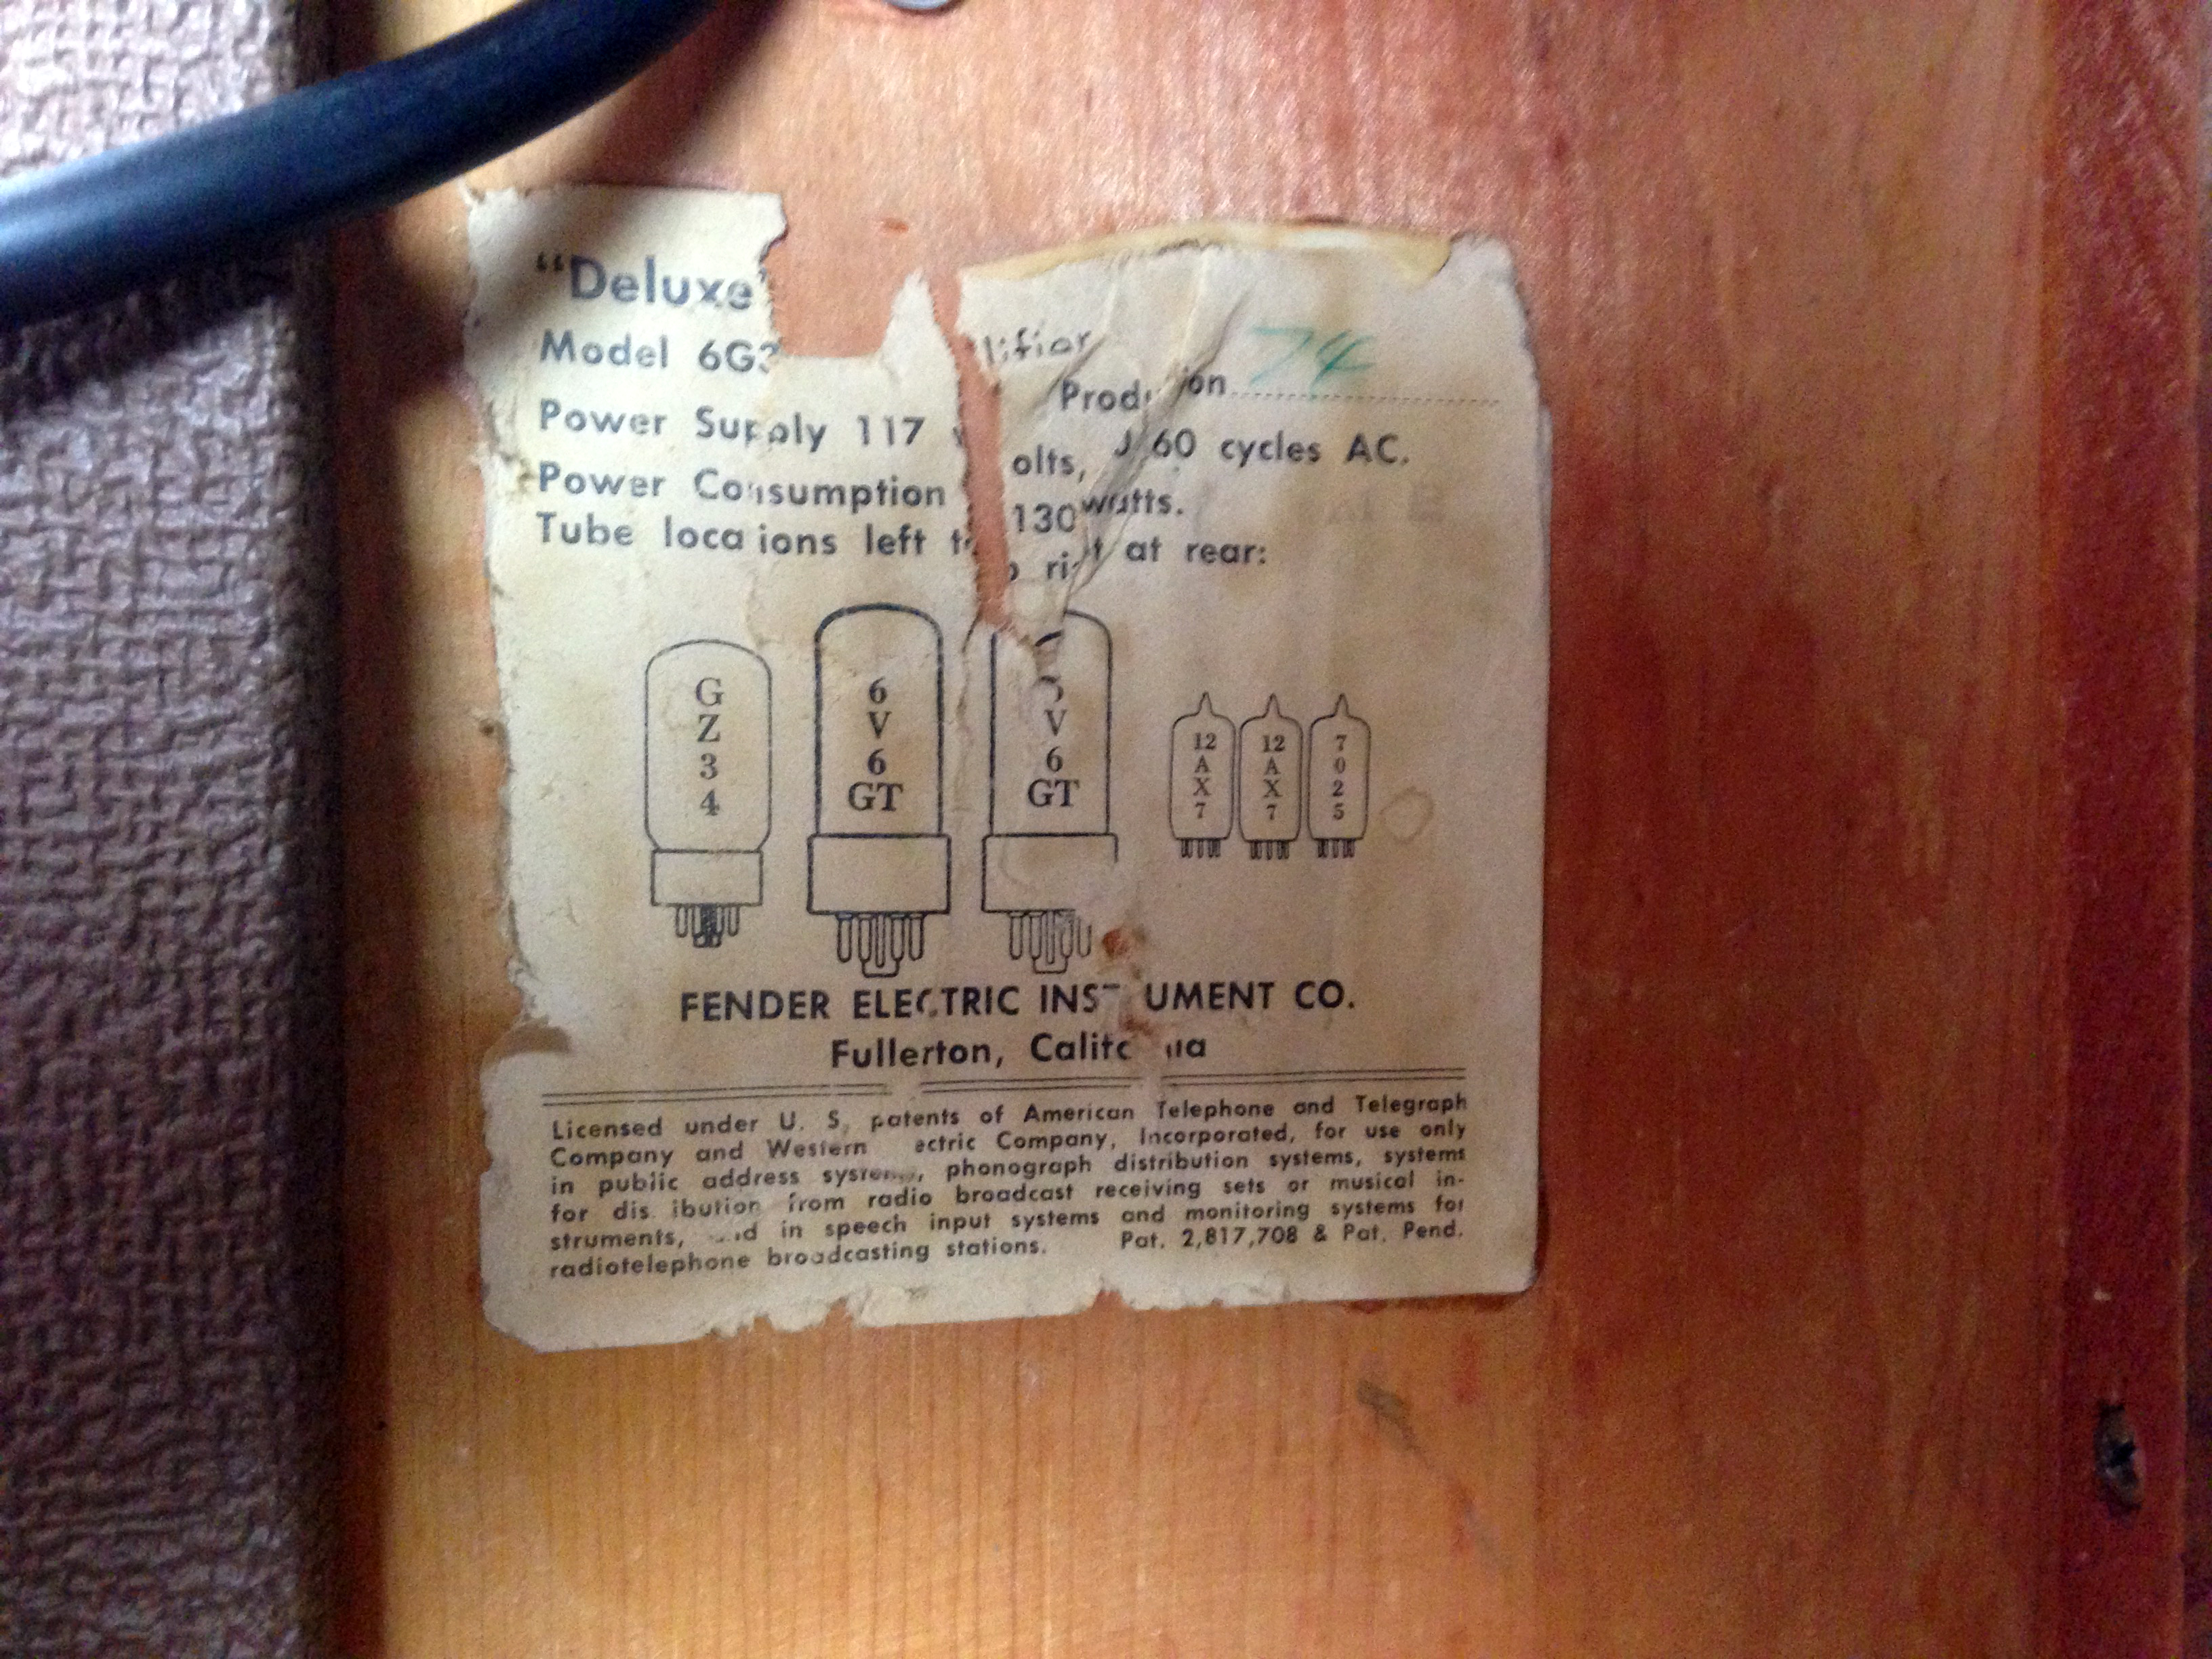 "Deluxe"
Model 6G3
Production 74
Power Supply 117 volts, 60 cycles AC.
Power Consumption 130 watts.
Tube locations left to right at rear:
GZ34
6V6GT
6V6GT
12AX7
12AX7
7025
FENDER ELECTRIC INSTRUMENT CO.
Fullerton, California
Licensed under U. S. patents of American Telephone and Telegraph
Company and Western Electric Company, Incorporated, for use only
in public address systems, phonograph distribution systems, systems
for distribution from radio broadcast receiving sets or musical in-
struments, and in speech input systems and monitoring systems for
radiotelephone broadcasting stations. Pat. 2,817,708 & Pat. Pend.